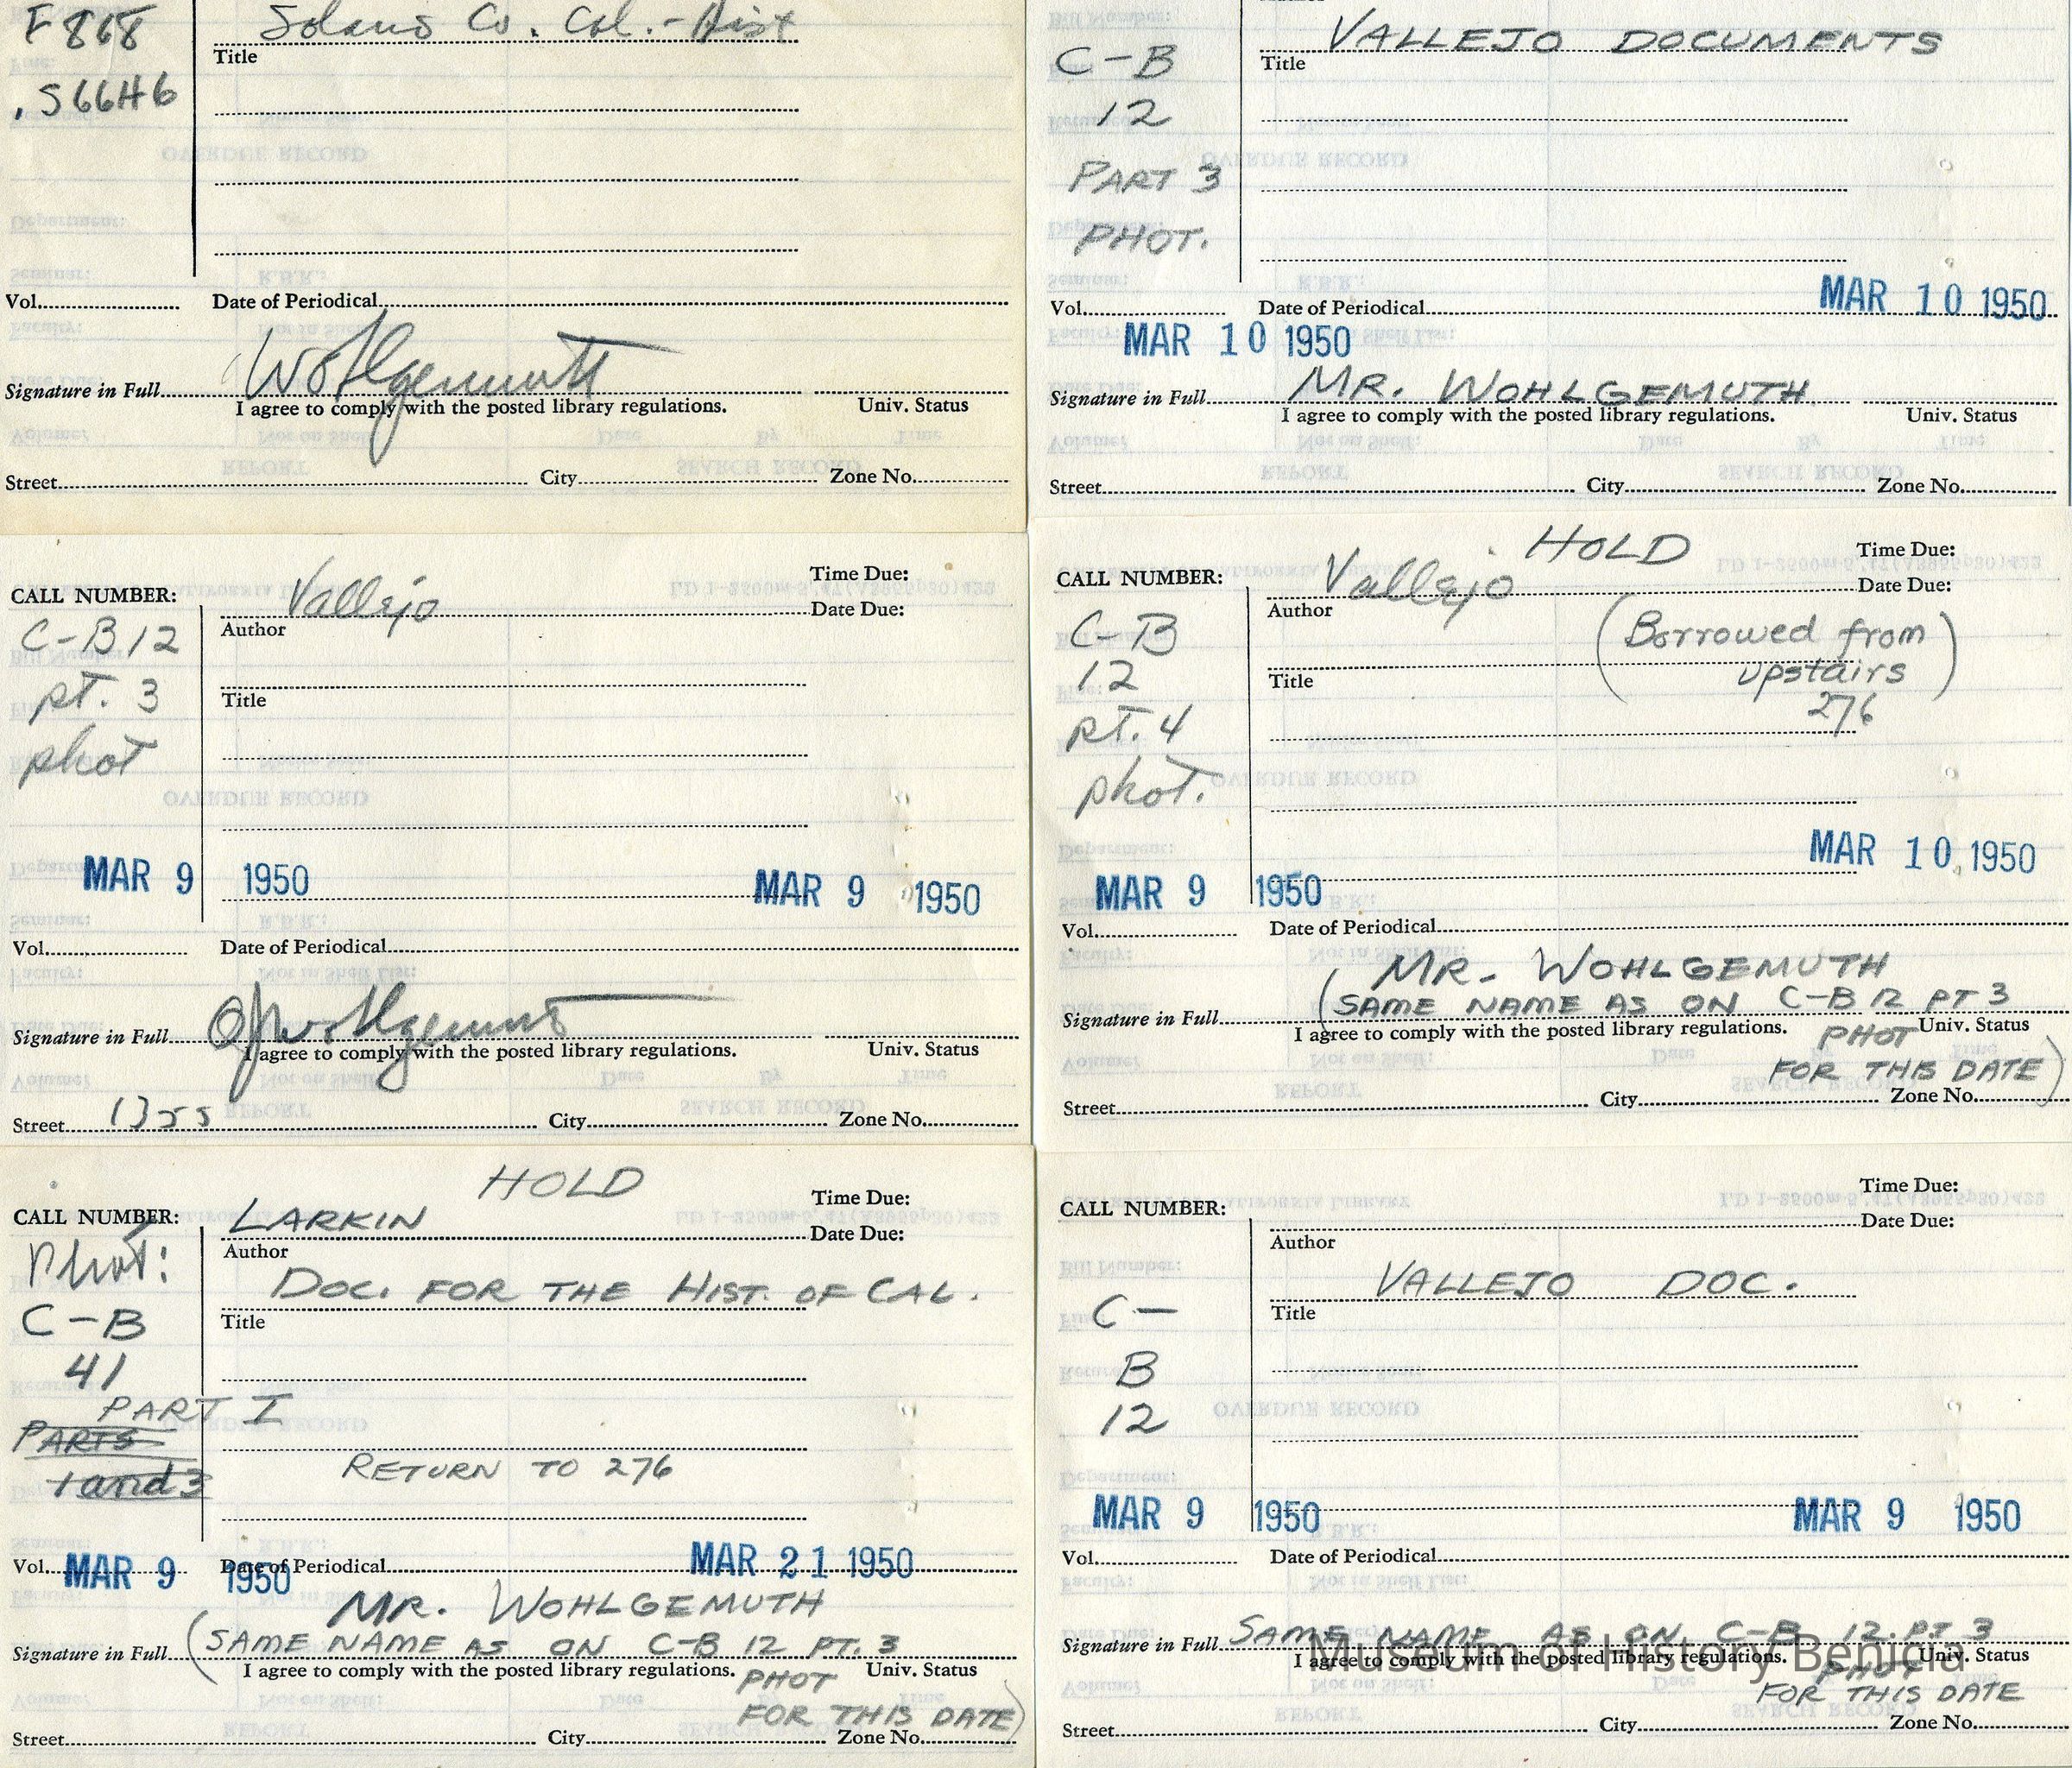 F868
.S66H6
Solano Co. Cal. - Hist
Title
Vol.
Date of Periodical
Wohlgemuth
Signature in Full
I agree to comply with the posted library regulations.
Univ. Status
Street
City
Zone No.
C-B
12
PART 3
PHOT.
VALLEJO DOCUMENTS
Title
MAR 10 1950
Vol.
Date of Periodical
MAR 10 1950
Signature in Full
MR. WOHLGEMUTH
I agree to comply with the posted library regulations.
Univ. Status
Street
City
Zone No.
Time Due:
CALL NUMBER:
Vallejo
Date Due:
Author
C-B 12
pt. 3
phot
Title
OVERDUE RECORD
MAR 9 1950
MAR 9 1950
Vol.
Date of Periodical
Signature in Full
I agree to comply with the posted library regulations.
Univ. Status
Street
1355
City
Zone No.
HOLD
Time Due:
CALL NUMBER:
Vallejo
Date Due:
Author
C-B
12
pt. 4
phot.
(Borrowed from
upstairs)
276
Title
OVERDUE RECORD
MAR 10 1950
MAR 9 1950
Vol.
Date of Periodical
MR. WOHLGEMUTH
Signature in Full
(SAME NAME AS ON C-B 12 PT 3
I agree to comply with the posted library regulations.
PHOT
Univ. Status
FOR THIS DATE)
Street
City
Zone No.
HOLD
Time Due:
CALL NUMBER:
LARKIN
Date Due:
Author
phot:
C-B
41
PART I
PARTS
1 and 3
DOC. FOR THE HIST. OF CAL.
Title
RETURN TO 276
MAR 21 1950
Vol.
MAR 9 1950
Date of Periodical
MR. WOHLGEMUTH
Signature in Full
(SAME NAME AS ON C-B 12 PT. 3
I agree to comply with the posted library regulations.
PHOT
Univ. Status
FOR THIS DATE)
Street
City
Zone No.
Time Due:
CALL NUMBER:
Date Due:
Author
C-
B
12
VALLEJO DOC.
Title
OVERDUE RECORD
MAR 9 1950
MAR 9 1950
Vol.
Date of Periodical
Signature in Full
SAME NAME AS ON C-B 12 PT 3
I agree to comply with the posted library regulations.
PHOT
Univ. Status
FOR THIS DATE
Street
City
Zone No.
Museum of History Benicia